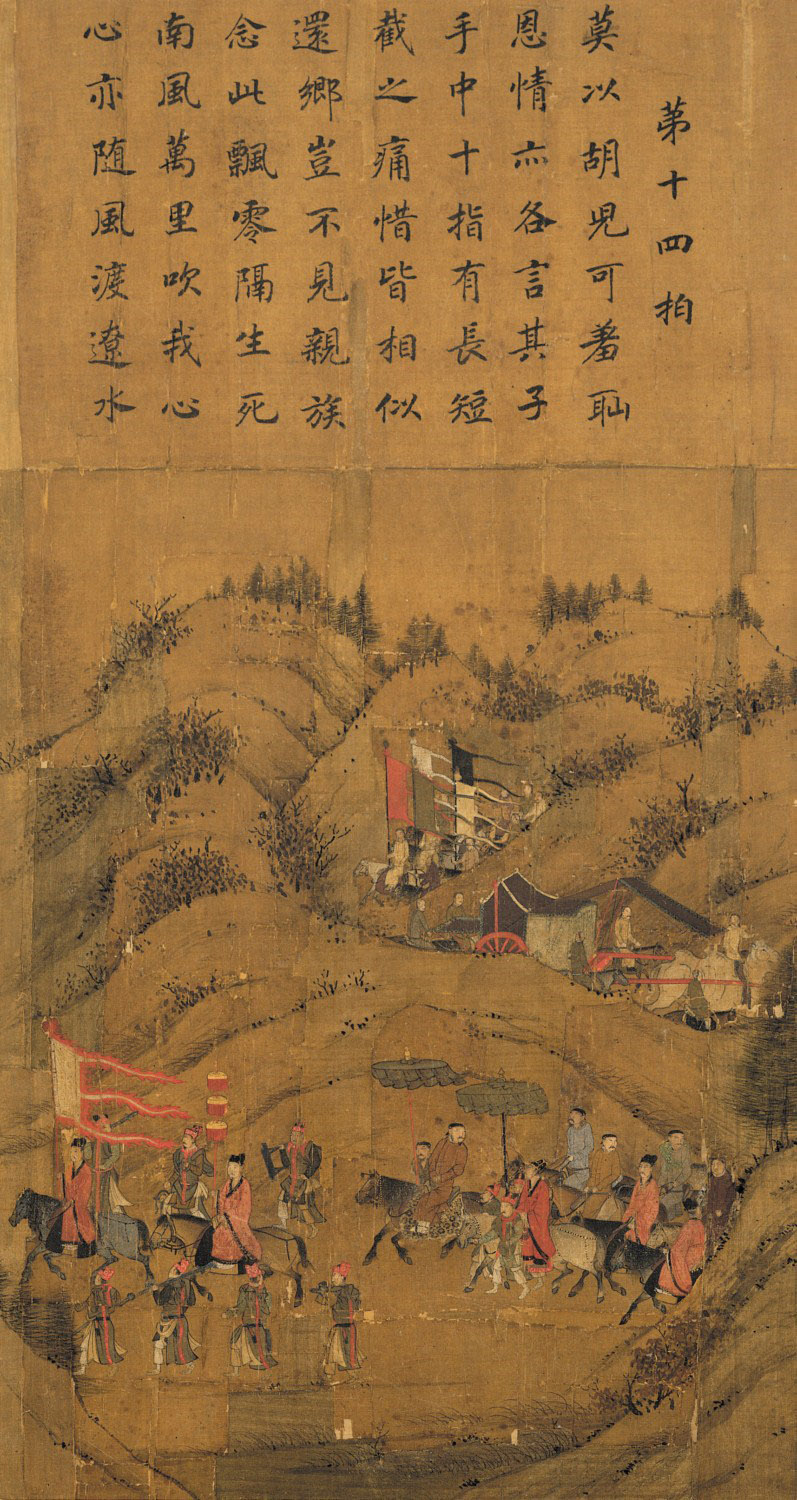 第十四拍
莫以胡児可羞恥
恩情亦各言其子
手中十指有長短
截之痛惜皆相似
還鄉豈不見親族
念此飄零隔生死
南風萬里吹我心
心亦随風渡遼水